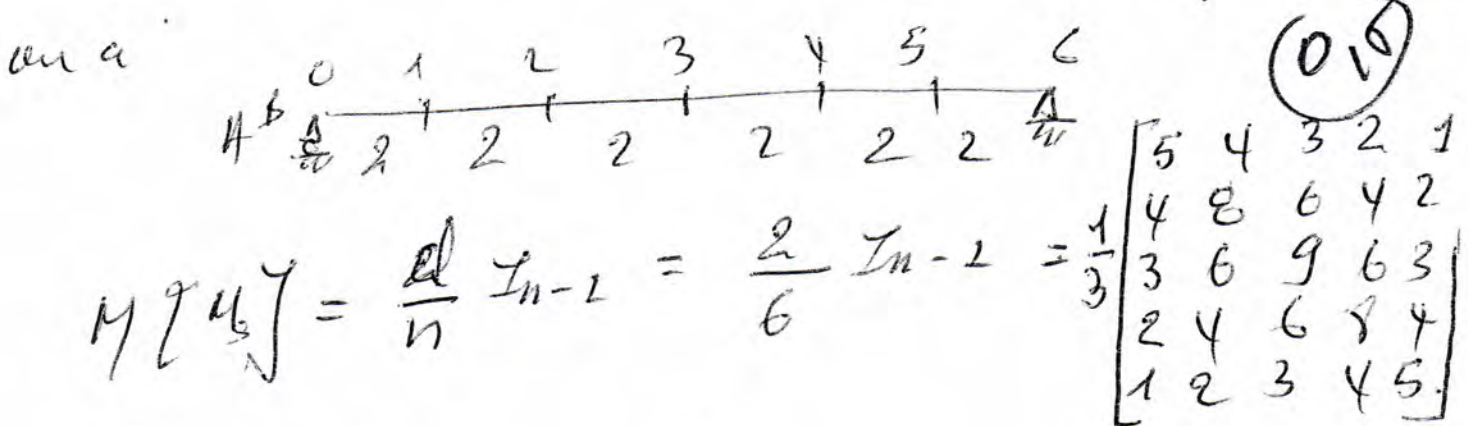 on a
0 1 2 3 4 5 6
2 2 2 2 2 2
M[M] = d/n I_{n-1} = 2/6 I_{n-1} = 1/3 [5 4 3 2 1
4 8 6 4 2
3 6 9 6 3
2 4 6 8 4
1 2 3 4 5]